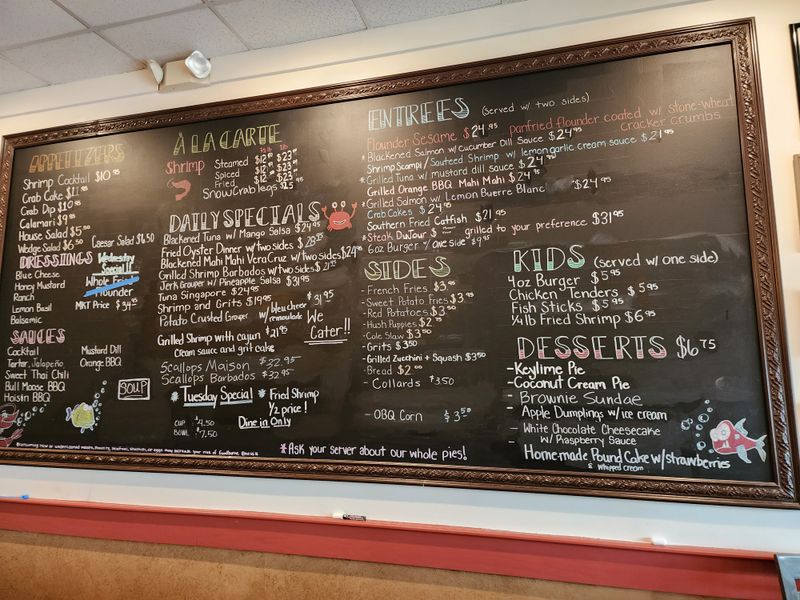 APPETIZERS
Shrimp Cocktail $10.95
Crab Cake $11.95
Crab Dip $10.95
Calamari $9.95
House Salad $5.00
Wedge Salad $6.50
Caesar Salad $6.50
DRESSINGS
Blue Cheese
Honey Mustard
Ranch
Lemon Basil
Balsamic
Wednesday
Special!!
Whole Fried
Flounder
MKT Price $34.95
SAUCES
Cocktail
Tartar, Jalapeño
Sweet Thai Chili
Bull Moose BBQ
Hoisin BBQ
Mustard Dill
Orange BBQ
SOUP
CUP $4.50
BOWL $7.50
À LA CARTE
Shrimp
½ lb lb
Steamed $12.95 $23.95
Spiced $12.95 $23.95
Fried $12.95 $23.95
Snow Crab legs
DAILY SPECIALS
Blackened Tuna w/ Mango Salsa $24.95
Fried Oyster Dinner w/ two sides $28.95
Blackened Mahi Mahi Vera Cruz w/ two sides $24.95
Grilled Shrimp Barbados w/ two sides $21.95
Jerk Grouper w/ Pineapple Salsa $31.95
Tuna Singapore $24.95
Shrimp and Grits $19.95
Potato Crusted Grouper w/ bleu cheese remoulade $31.95
Grilled Shrimp with cajun $21.95
Cream sauce and grit cake
Scallops Maison $32.95
Scallops Barbados $32.95
We
Cater!!
* Tuesday Special * Fried Shrimp
1/2 price!
Dine in Only
ENTREES (served w/ two sides)
Flounder Sesame $24.95 panfried flounder coated w/ stone-wheat
cracker crumbs
* Blackened Salmon w/ Cucumber Dill Sauce $24.95
Shrimp Scampi / Sauteed Shrimp w/ lemon garlic cream sauce $21.95
* Grilled Tuna w/ mustard dill sauce $24.95
Grilled Orange BBQ Mahi Mahi $24.95
* Grilled Salmon w/ Lemon Buerre Blanc $24.95
Crab Cakes $24.95
Southern Fried Catfish $21.95
* Steak DuJour $ grilled to your preference $31.95
6oz Burger w/ one side $9.95
SIDES
- French Fries $3.95
- Sweet Potato Fries $3.95
- Red Potatoes $3.50
- Hush Puppies $2.75
- Cole Slaw $3.50
- Grits $3.50
- Grilled Zucchini + Squash $3.50
- Bread $2.00
- Collards $3.50
- OBQ Corn $3.50
KIDS (served w/ one side)
4oz Burger $5.95
Chicken Tenders $5.95
Fish Sticks $5.95
1/4 lb Fried Shrimp $6.95
DESSERTS $6.75
- Keylime Pie
- Coconut Cream Pie
- Brownie Sundae
- Apple Dumplings w/ ice cream
- White Chocolate Cheesecake
w/ Raspberry Sauce
Home-made Pound Cake w/ strawberries
& whipped cream
* Ask your server about our whole pies!
*Consuming raw or undercooked meats, Poultry, Seafood, Shellfish, or eggs may increase your risk of foodborne illness